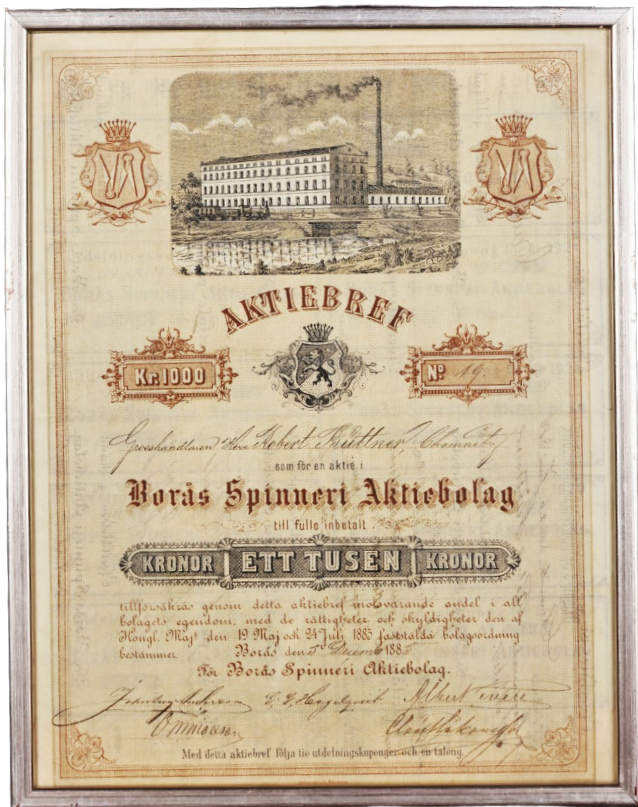 AKTIEBREF
Kr. 1000
No 19.
Grosshandlaren Herr Robert Büttner, Chemnitz
som för en aktie i
Borås Spinneri Aktiebolag
till fullo inbetalt
KRONOR ETT TUSEN KRONOR
tillförsäkras genom detta aktiebref motsvarande andel i all
bolagets egendom, med de rättigheter och skyldigheter den af
Kongl. Maj:t den 19 Maj och 24 Juli 1885 fastställda bolagsordning
bestämmer. Borås den 5 December 1885
För Borås Spinneri Aktiebolag.
Med detta aktiebref följa tie utdelningskuponger och en talong.